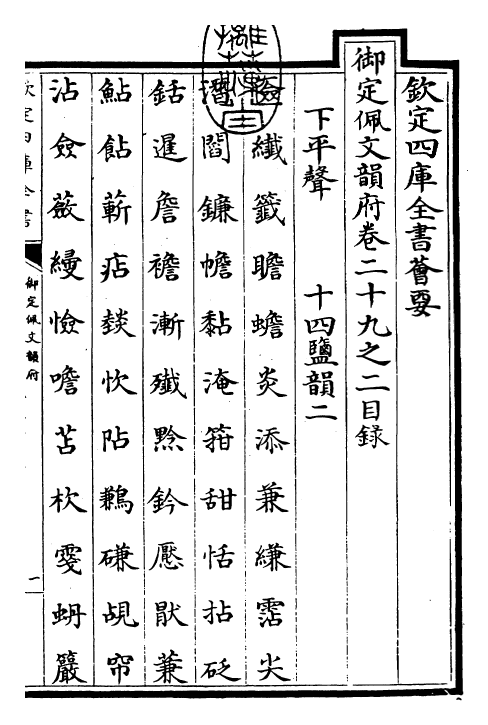 欽定四庫全書薈要
御定佩文韻府卷二十九之二目錄
下平聲　十四鹽韻二
纖籤瞻蟾炎添兼縑霑尖
潛閻鐮幨黏淹箝甜恬拈砭
銛暹詹襜漸殲黬鈐懕猒蒹
鮎飴蘄痁燅忺阽鶼磏覘帘
沾僉薟縵憸噡苫杴霎蚦籢
欽定四庫全書
御定佩文韻府
一